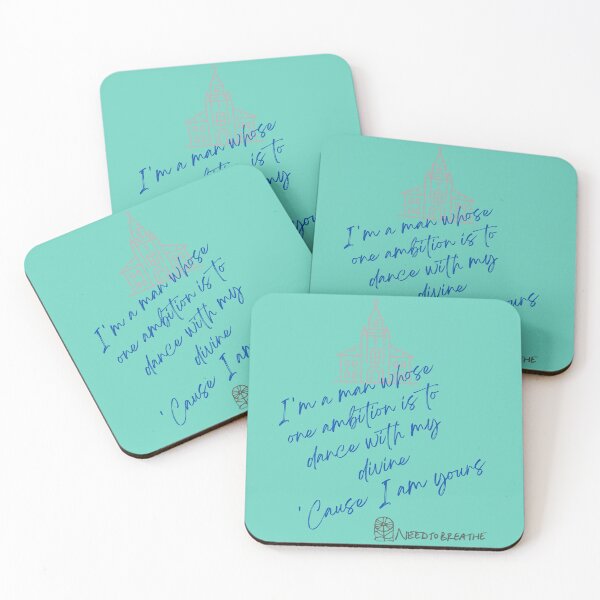 I'm a man whose
ambition is to
my
yours
I'm a man whose
one ambition is to
dance with my
divine
yours
BREATHE
I'm a man whose
one ambition is to
dance with my
divine
'Cause I am
I'm a man whose
one ambition is to
dance with my
divine
'Cause I am yours
NEEDTOBREATHE